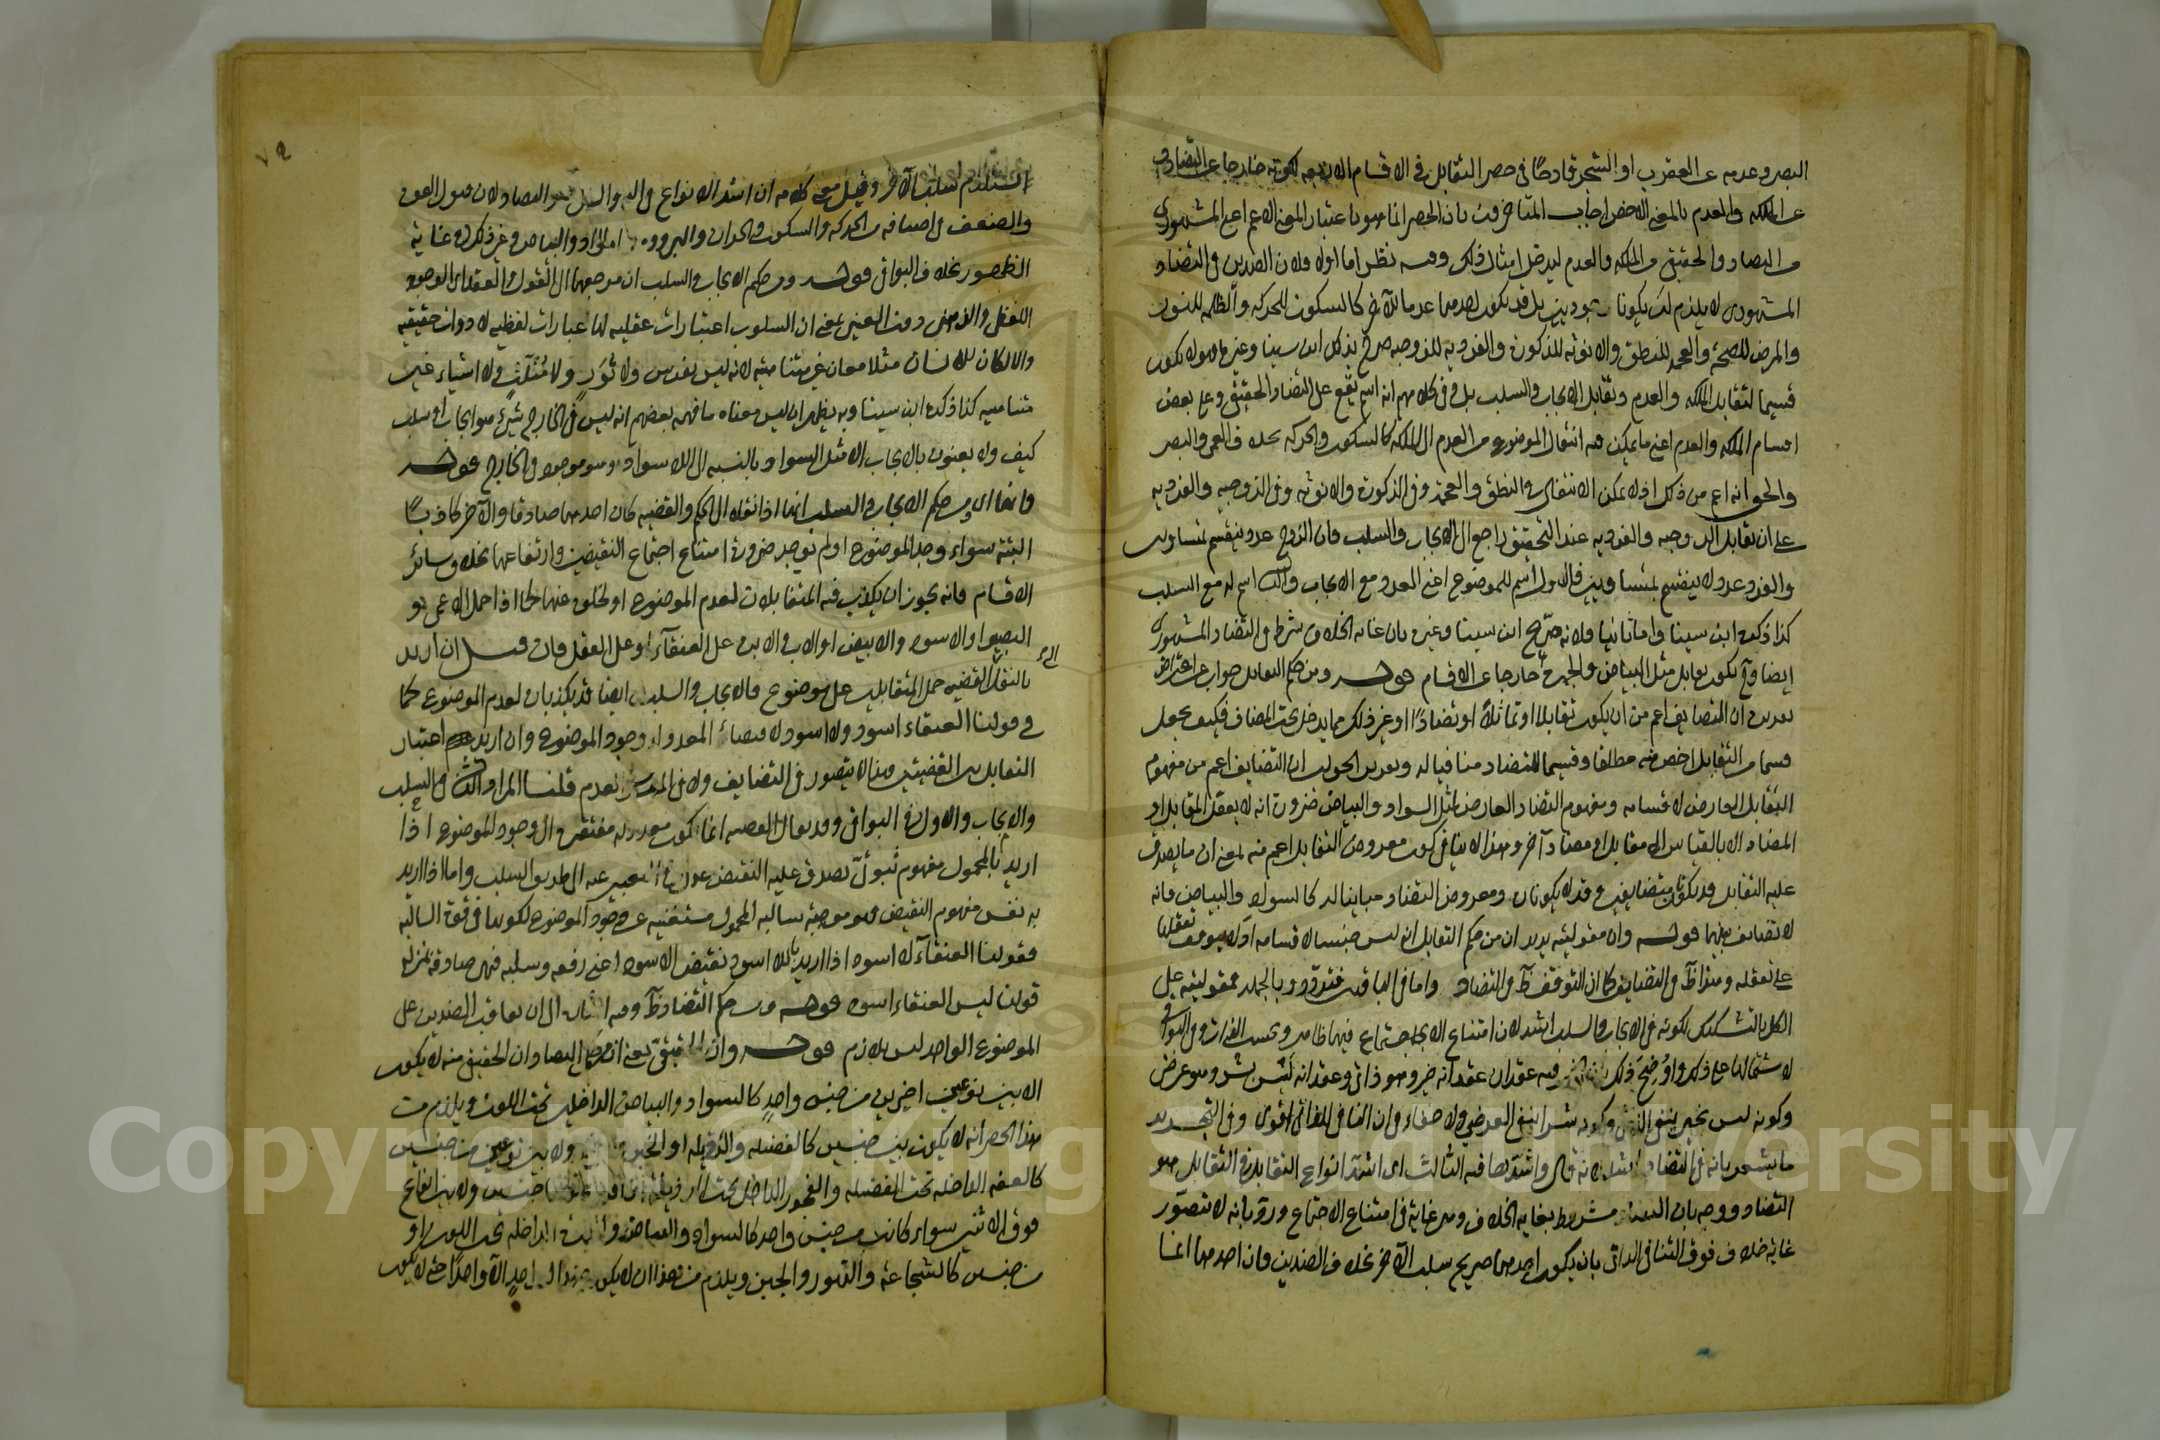 البصر وعدمه عن العقرب او الشجر قادحًا في حصر التقابل في الاقسام الاربعة لكونه خارجا عن التضاد و
عن الملكه والعدم بالمعنى الاخص اجاب المتاخرون بان الحصر انما هو باعتبار المعنى الاعم اعني المشهوري
من التضاد والحقيقي من الملكه والعدم ليدخل امثال ذلك وفيه نظر اما اولا فلان الضدين في التضاد
المشهوري لا يلزم ان يكونا وجوديين بل قد يكون احدهما عدما للآخر كالسكون للحركه والظلمه للنور
والمرض للصحة والعجمة للنطق والانوثه للذكورة والفرديه للزوجيه صرح بذلك ابن سينا وغيره فهو لا يكون
قسيما لتقابل الملكه والعدم وتقابل الايجاب والسلب بل وفي كلامهم انه اسم يقع على التضاد الحقيقي وعلى بعض
اقسام الملكه والعدم اعني ما يمكن فيه انتقال الموضوع من العدم الى الملكه كالسكون والحركه بخلاف العمى والبصر
والحق انه اعم من ذلك اذ لا يمكن الانتقال في النطق والعجمة وفي الذكورة والانوثه وفي الزوجيه والفرديه
على ان تقابل الزوجيه والفرديه عند التحقيق راجع الى الايجاب والسلب فان الزوج عدد ينقسم بمتساويين
والفرد عدد لا ينقسم بمتساويين فالاول اسم للموضوع اعني العدد مع الايجاب والثاني اسم له مع السلب
كذا ذكره ابن سينا واما ثانيا فلانه صرح ابن سينا وغيره بان غايه الخلاف شرط في التضاد المشهوري
ايضا وح يكون تقابل مثل البياض والحمرة خارجا عن الاقسام قوله ومن حكم التقابل جواب عن اعتراض
تقريره ان التضايف اعم من ان يكون تقابلا او تماثلا او تضادًا او غير ذلك مما يدخل تحت المضاف فكيف يجعل
قسما من التقابل اخص منه مطلقا وقسيما للتضاد منافيا له وتقرير الجواب ان التضايف اعم من مفهوم
التقابل العارض لاقسامه ومفهوم التضاد العارض لمثل السواد والبياض ضرورة انه لا يعقل المقابل او
المضاد الا بالقياس الى مقابل او مضاد آخر وهذا لا ينافي كون معروض التقابل اعم منه بمعنى ان ما يصدق
عليه التقابل قد يكونان متضايفين وقد لا يكونان ومعروض التضاد مباينا له كالسواد والبياض فانه
لا تضايف بينهما قوله وان مقوليته يريد ان من حكم التقابل انه ليس جنسا لاقسامه اذ لا يتوقف تعقلها
على تعقله وهذا ظ في التضايف كما ان التوقف ظ في التضاد واما في الباقيين فتردد وبالجمله فمقوليته على
الكل بالتشكيك لكونه في الايجاب والسلب اشد لان امتناع الاجتماع فيهما ظاهر وبحسب الذات وفي البواقي
لاشتمالها على ذلك واوضح ذلك بان الخير فيه عقدان عقد انه خير وهو ذاتي وعقد انه ليس بشر وهو عرضي
وكونه ليس بخير ينفي الذاتي وكونه شر ا ينفي العرضي ولا خفاء في ان النافي للذاتي اقوى وفي التجريد
ما يشعر بانه في التضاد اشد لانه قال واشدها فيه الثالث اي اشد انواع التقابل في التقابل هو
التضاد ووجه بان التضاد مشروط بغايه الخلاف وهي غاية في امتناع الاجتماع ورد بانه لا يتصور
غايه خلاف فوق التنافي الذاتي بان يكون احدهما صريح سلب الآخر بخلاف الضدين فان احدهما انما
يستلزم سلب الآخر وقيل معنى كلامه ان اشد الانواع في التشكيك هو التضاد لان قبول القوة
والضعف في اصنافه من الحركه والسكون والحرارة والبرودة والسواد والبياض وغير ذلك في غاية
الظهور بخلاف البواقي قوله ومن حكم الايجاب والسلب ان مرجعهما الى القول والعقد اي الوجود
اللفظي والذهني دون العيني بمعنى ان السلوب اعتبارات عقليه لها عبارات لفظيه لا ذوات حقيقيه
والا لكان للانسان مثلا معان غير متناهية لانه ليس بفرس ولا ثور ولا مثلث ولا اشياء غير
متناهيه كذا ذكره ابن سينا وبه يظهر ان ليس معناه ما فهمه بعضهم انه ليس في الخارج شيء هو ايجاب او سلب
كيف ولا يعنون بالايجاب الا مثل السواد بالنسبه الى اللاسواد وهو موجود في الخارج قوله
وانهما اي ومن حكم الايجاب والسلب انهما اذا نقلا الى الحكم والقضيه كان احدهما صادقا والآخر كاذبًا
البتة سواء وجد الموضوع او لم يوجد ضرورة امتناع اجتماع النقيضين وارتفاعهما بخلاف سائر
الاقسام فانه يجوز ان يكذب فيه المتقابلات لعدم الموضوع او لخلوه عنهما كما اذا حمل الاعمى او
البصير او الاسود والابيض او الاب والابن على العنقاء او على العقل فان قيل ان اريد
بالنقل الى القضيه حمل المتقابلين على موضوع فالايجاب والسلب ايضا قد يكذبان لعدم الموضوع كما
في قولنا العنقاء اسود ولا اسود لاقتضاء المعدولة وجود الموضوع وان اريد اعتبار
التقابل بين القضيتين فهذا لا يتصور في التضايف ولا في الملكة والعدم قلنا المراد الثاني في السلب
والايجاب والاول في البواقي وقد يقال القضيه انما يكون معدوله مفتقرة الى وجود الموضوع اذا
اريد بالمحمول مفهوم ثبوتي يصدق عليه النقيض عدل في التعبير عنه الى طريق السلب واما اذا اريد
به نفس مفهوم النقيض فهو موجبة سالبه المحمول مستغنيه عن وجود الموضوع لكونها في قوة السالبه
فقولنا العنقاء لا اسود اذا اريد باللااسود نقيض الاسود اعني رفعه وسلبه فهي صادقة بمنزلة
قولنا ليس العنقاء اسود قوله ومن حكم التضاد ظ وفيه اشارة الى ان تعاقب الضدين على
الموضوع الواحد ليس بلازم قوله وان الحقيقي يعني ان من حكم التضاد ان الحقيقي منه لا يكون
الا بين نوعين اخيرين من جنس واحد كالسواد والبياض الداخلين تحت اللون ويلزم من
هذا الحصر انه لا يكون بين جنسين كالفضيله والرذيله او الخير والشر ولا بين نوعين من جنسين
كالعفه الداخله تحت الفضيله والفجور الداخل تحت الرذيلة ولا بين انواع
فوق الاثنين سواء كانت من جنس واحد كالسواد والبياض والحمرة الداخله تحت اللون او
من جنسين كالشجاعة والتهور والجبن ويلزم من هذا ان لا يكون ضد الواحد الا واحدًا حتى لا يكون